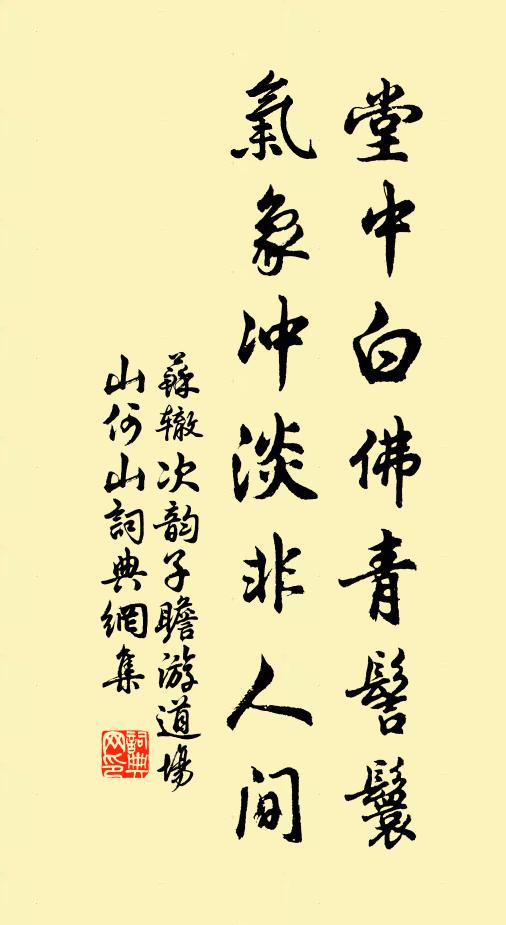 堂中白佛青髻鬟
氣象冲淡非人间
蘇辙次韵子瞻游道場
山何山詞典網集
詞典
网印